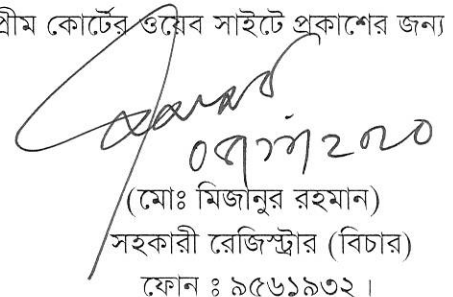 প্রীম কোর্টের ওয়েব সাইটে প্রকাশের জন্য
(মোঃ মিজানুর রহমান)
সহকারী রেজিস্ট্রার (বিচার)
ফোন ঃ ৯৫৬১৯৩২।